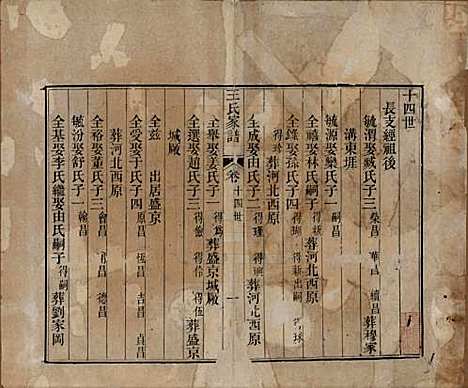 十四世
長支經祖後
毓渭娶臧氏子三 榮昌 華昌 續昌 葬穆家
溝東堐
毓源娶欒氏子一 嗣昌
仝禧娶林氏嗣子 得新 葬河北西原
仝鋒娶孫氏子四 得瑚 得新出嗣 得球
得珍 葬河北西原
仝成娶由氏子二 得瑾 得 葬河北西原
王氏家譜 卷 十四世 一
仝舉娶姜氏子一 得爲 葬盛京城廠
仝選娶趙氏子三 得儉 得 得伍 葬盛京
城廠
仝茲 出居盛京
仝受娶于氏子四 原昌 恆昌 吉昌 貞昌
葬河北西原
仝裕娶董氏子三 會昌 昌 德昌
毓汾娶舒氏子一 翰昌
仝基娶李氏繼娶由氏嗣子 得嗣 葬劉家岡